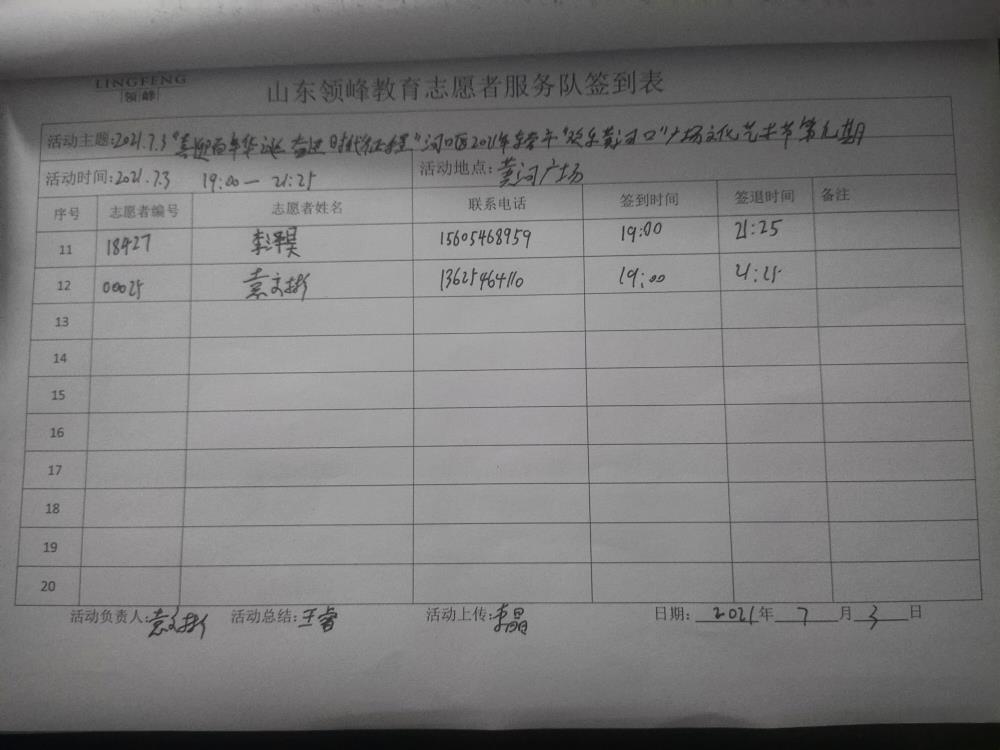 LINGFENG
领峰
山东领峰教育志愿者服务队签到表
活动主题:2021.7.3"喜迎百年华诞 奋进时代征程"河口区2021年 "欢乐黄河口"广场文化艺术节第九期
活动时间:2021.7.3 19:00—21:25 活动地点:黄河广场
序号 志愿者编号 志愿者姓名 联系电话 签到时间 签退时间 备注
11 18427 李泽昊 15605468959 19:00 21:25
12 00025 袁文彬 13625464110 19:00 21:25
13
14
15
16
17
18
19
20
活动负责人:袁文彬 活动总结:王睿 活动上传:李晶 日期: 2021年 7 月 3 日